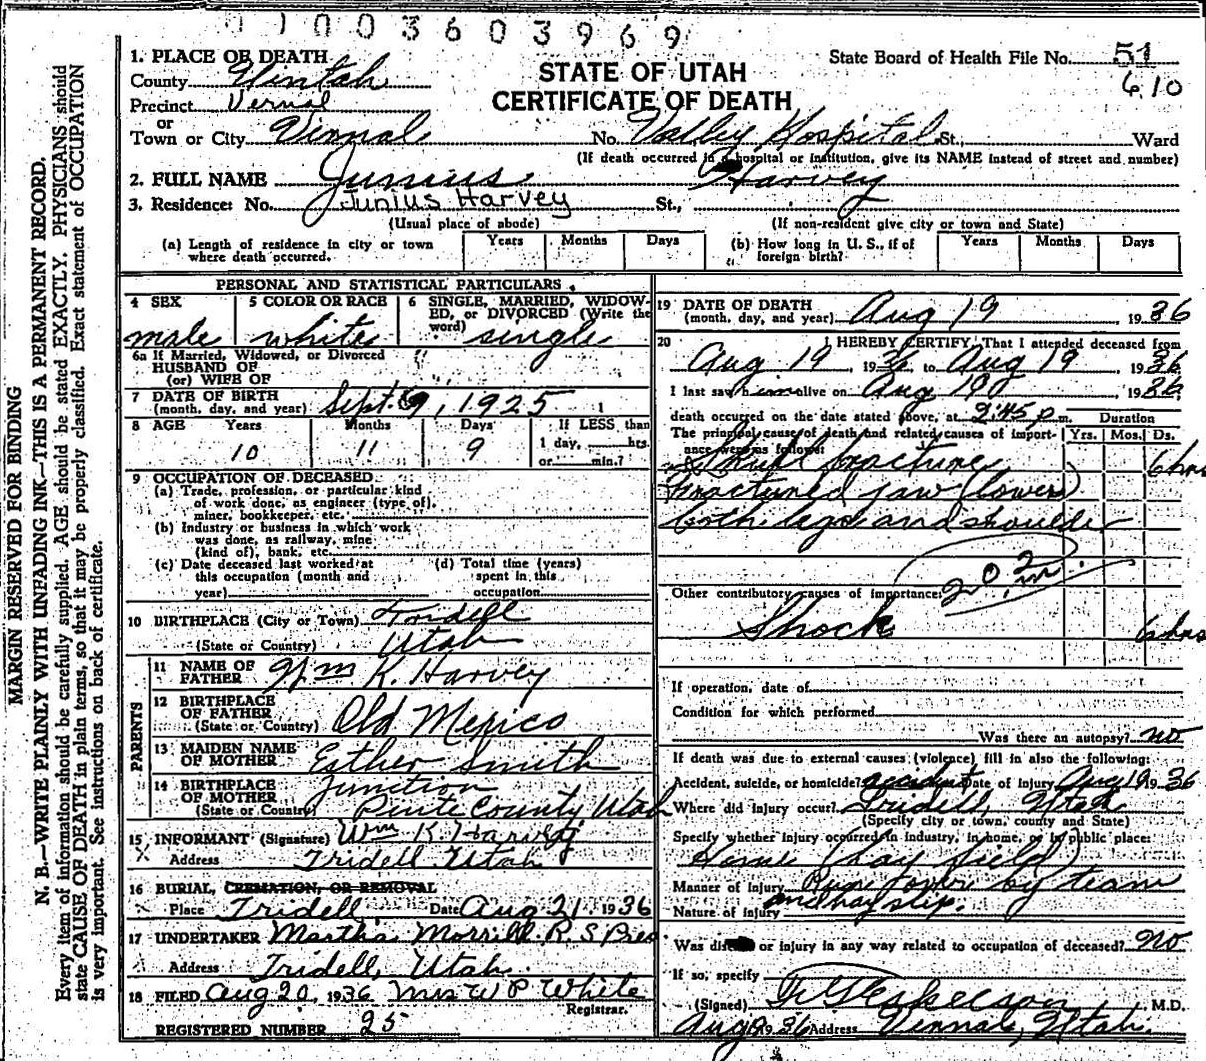 01003603969
1. PLACE OF DEATH
County Uintah
Precinct Vernal
or
Town or City Vernal No. Valley Hospital St., Ward
State Board of Health File No. 51
610
STATE OF UTAH
CERTIFICATE OF DEATH
(If death occurred in a hospital or institution, give its NAME instead of street and number)
2. FULL NAME Junius Harvey
3. Residence: No. Junius Harvey St.,
(Usual place of abode) (If non-resident give city or town and State)
(a) Length of residence in city or town where death occurred. Years Months Days
(b) How long in U. S., if of foreign birth? Years Months Days
PERSONAL AND STATISTICAL PARTICULARS
4 SEX male
5 COLOR OR RACE white
6 SINGLE, MARRIED, WIDOWED, or DIVORCED (Write the word) single
6a If Married, Widowed, or Divorced
HUSBAND OF
(or) WIFE OF
7 DATE OF BIRTH
(month, day, and year) Sept. 9, 1925
8 AGE Years Months Days If LESS than
10 11 9 1 day, hrs.
or min.?
9 OCCUPATION OF DECEASED
(a) Trade, profession, or particular kind
of work done, as engineer (type of),
miner, bookkeeper, etc.
(b) Industry or business in which work
was done, as railway, mine
(kind of), bank, etc.
(c) Date deceased last worked at
this occupation (month and
year)
(d) Total time (years)
spent in this
occupation
10 BIRTHPLACE (City or Town) Tridell
(State or Country) Utah
PARENTS
11 NAME OF FATHER Wm K. Harvey
12 BIRTHPLACE OF FATHER
(State or Country) Old Mexico
13 MAIDEN NAME OF MOTHER Esther Smith
14 BIRTHPLACE OF MOTHER Junction
(State or Country) Piute County, Utah
15 INFORMANT (Signature) Wm K. Harvey
Address Tridell Utah
16 BURIAL, CREMATION, OR REMOVAL
Place Tridell Date Aug 21, 1936
17 UNDERTAKER Martha Morrill R. S Pres
Address Tridell, Utah
18 FILED Aug 20, 1936 Mrs W P White
Registrar.
REGISTERED NUMBER 25
19 DATE OF DEATH
(month, day, and year) Aug 19, 1936
20 I HEREBY CERTIFY, That I attended deceased from
Aug 19, 1936, to Aug 19, 1936
I last saw him alive on Aug 19, 1936
death occurred on the date stated above, at 2:45 p.m. Duration
The principal cause of death and related causes of importance were as follows: Yrs. Mos. Ds.
Skull fracture 6 hrs
Fractured jaw (lower)
both legs and shoulder
Other contributory causes of importance:
Shock 6 hrs
If operation, date of
Condition for which performed
Was there an autopsy? no
If death was due to external causes (violence) fill in also the following:
Accident, suicide, or homicide? accident Date of injury Aug 19, 1936
Where did injury occur? Tridell, Utah
(Specify city or town, county and State)
Specify whether injury occurred in industry, in home, or in public place:
Home (hay field)
Manner of injury Run over by team
and hay slip.
Nature of injury
Was disease or injury in any way related to occupation of deceased? no
If so, specify
(Signed) M.D.
Aug 19, 36 Address Vernal, Utah.
MARGIN RESERVED FOR BINDING
N. B.—WRITE PLAINLY WITH UNFADING INK—THIS IS A PERMANENT RECORD.
Every item of information should be carefully supplied. AGE should be stated EXACTLY. PHYSICIANS should
state CAUSE OF DEATH in plain terms, so that it may be properly classified. Exact statement of OCCUPATION
is very important. See instructions on back of certificate.